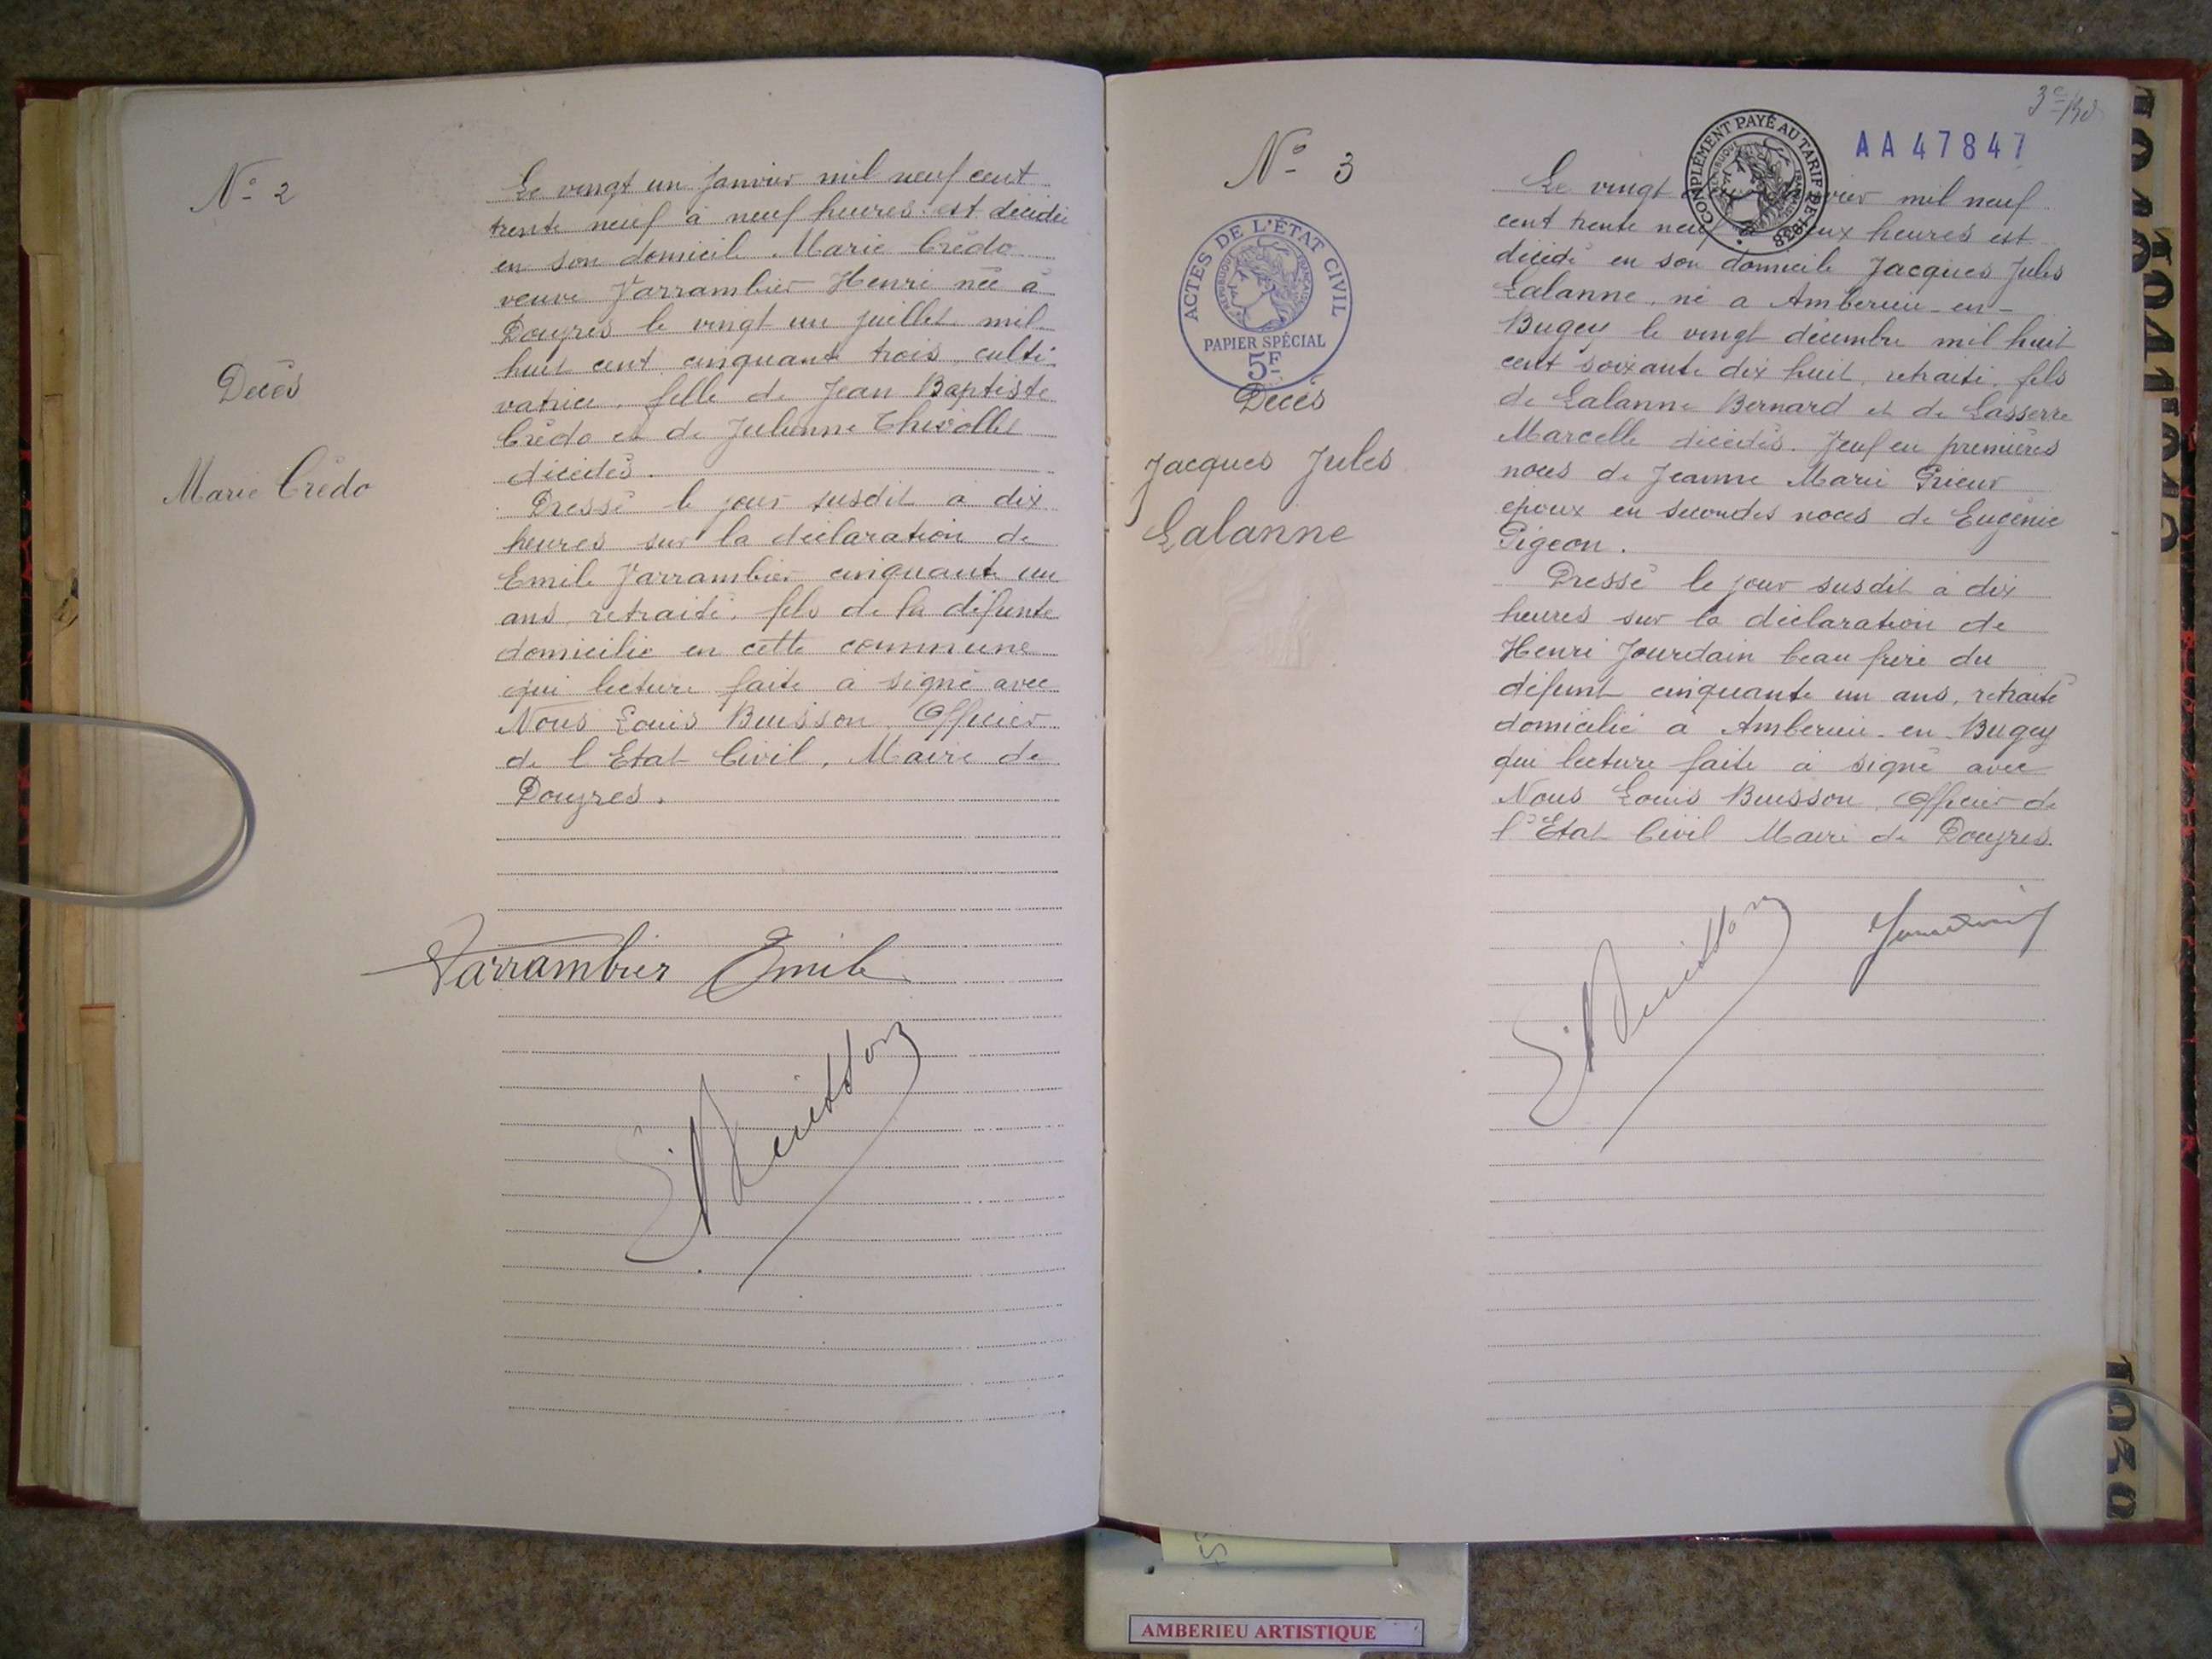 N° 2
Décès
Marie Crédo
Le vingt un Janvier mil neuf cent
trente neuf à neuf heures est décédée
en son domicile Marie Crédo
veuve Varrambier Henri née à
Douvres le vingt un juillet mil
huit cent cinquante trois culti
vatrice, fille de Jean Baptiste
Crédo et de Julienne Thivollet
décédés.
Dressé le jour susdit à dix
heures sur la déclaration de
Emile Varrambier cinquante un
ans, retraité, fils de la défunte
domicilié en cette commune
qui lecture faite a signé avec
Nous Louis Buisson Officier
de l Etat Civil, Maire de
Douvres.
Varrambier Emile
L. Buisson
3e
N° 3
AA 47847
COMPLÉMENT PAYÉ AU TARIF DE 1938
ACTES DE L'ÉTAT CIVIL
RÉPUBLIQUE FRANÇAISE
PAPIER SPÉCIAL
5F
Décès
Jacques Jules
Lalanne
Le vingt vier mil neuf
cent trente neuf eux heures est
décédé en son domicile Jacques Jules
Lalanne, né a Amberieu-en-
Bugey le vingt décembre mil huit
cent soixante dix huit, retraité, fils
de Lalanne Bernard et de Lasserre
Marcelle décédés. Veuf en premières
noces de Jeanne Marie Prieur
epoux en secondes noces de Eugénie
Pigeon.
Dressé le jour susdit à dix
heures sur la déclaration de
Henri Jourdain beau frère du
défunt cinquante un ans, retraité
domicilié a Amberieu-en-Bugey
qui lecture faite a signé avec
Nous Louis Buisson, Officier de
l'Etat Civil Maire de Douvres.
L. Buisson Jourdain
AMBERIEU ARTISTIQUE